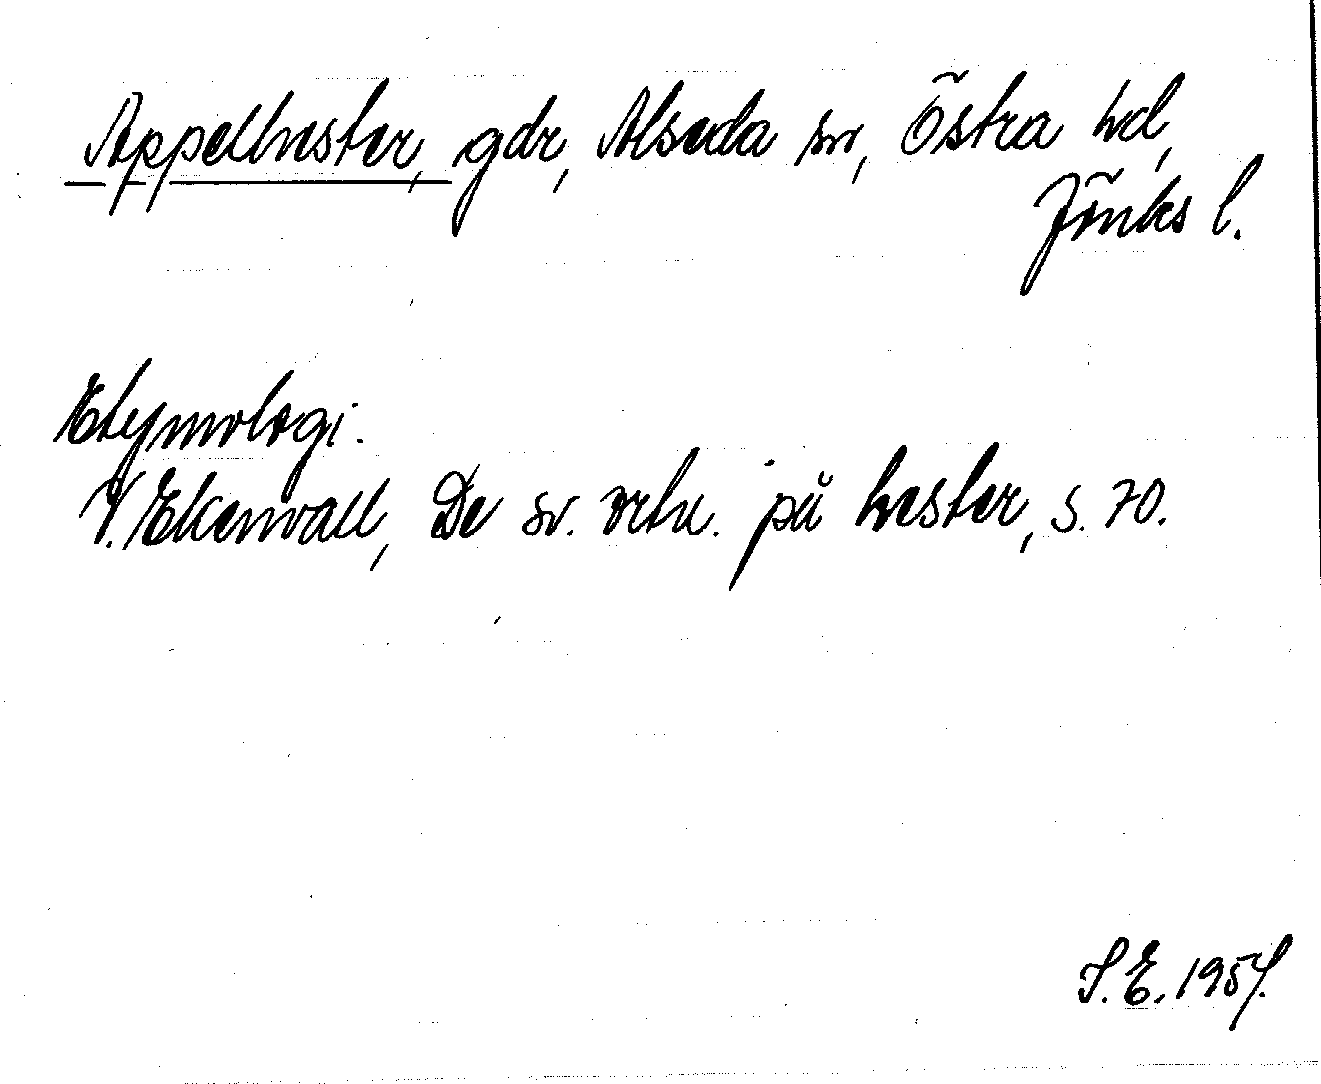 Appelhester, gdr, Alseda sn, Östra hd,
Jönks l.
Etymologi.
V. Ekenvall, De sv. ortn. på hester, s. 70.
S.E. 1957.